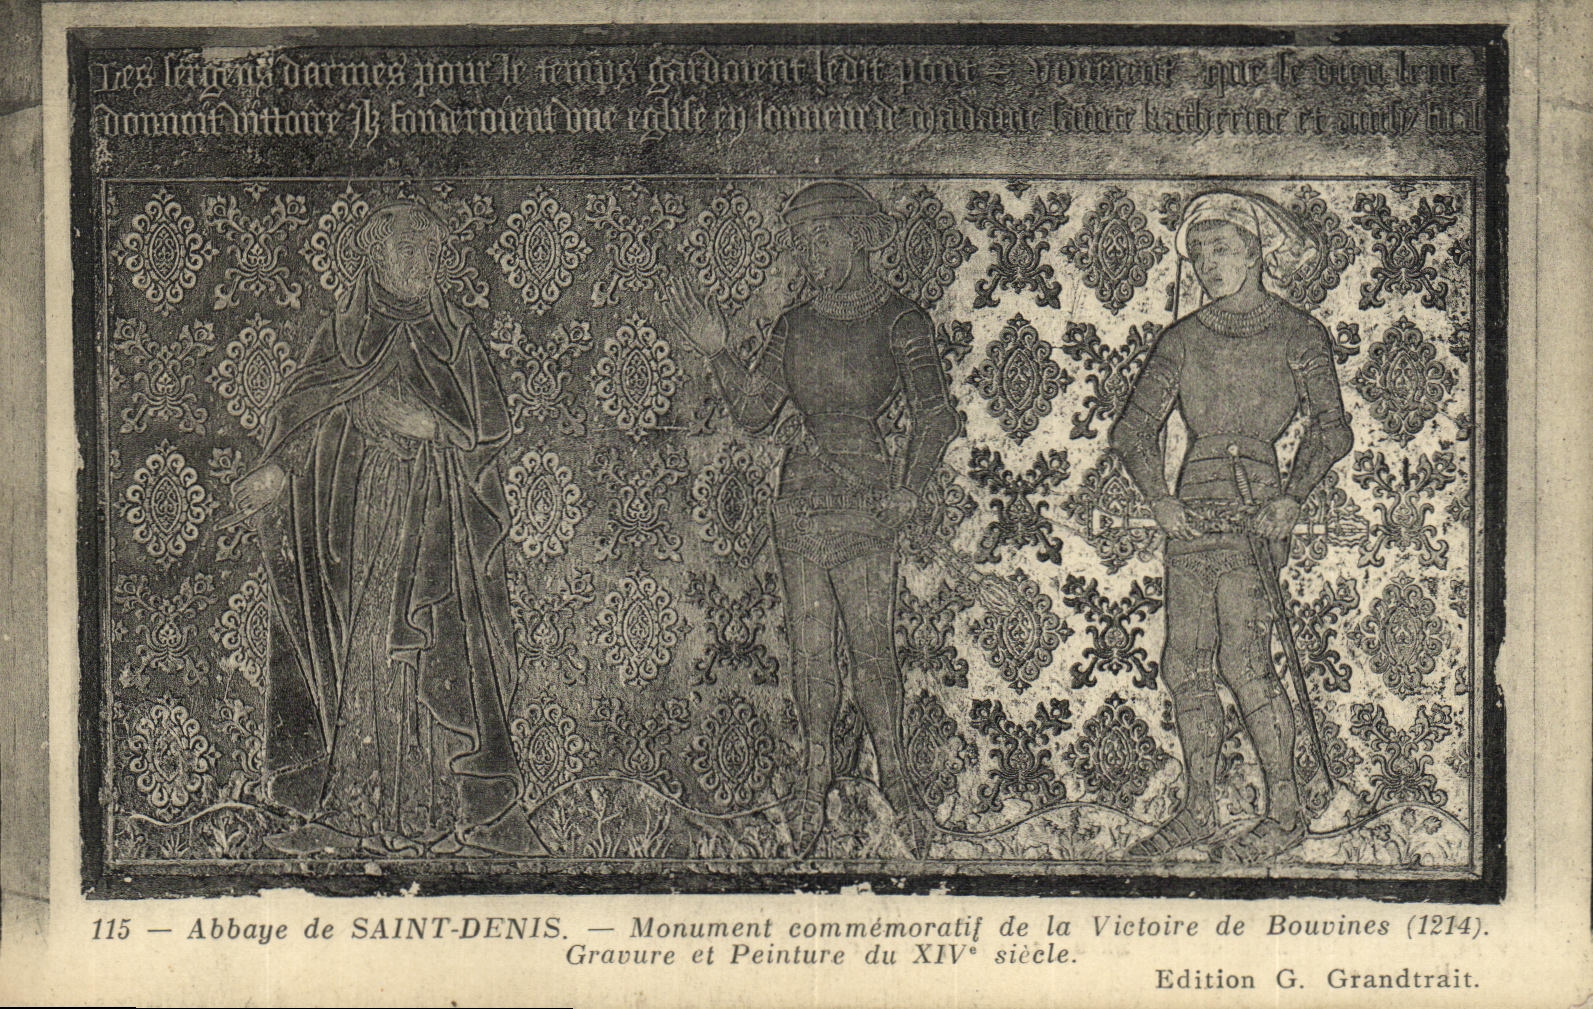 Les sergens darmes pour le temps gardoient ledit pont & vouerent que se dieu leur
donnoit vittoire Ilz fonderoient vne eglise en lonneur de madame sainte katherine et
115 — Abbaye de SAINT-DENIS. — Monument commémoratif de la Victoire de Bouvines (1214).
Gravure et Peinture du XIVe siècle.
Edition G. Grandtrait.